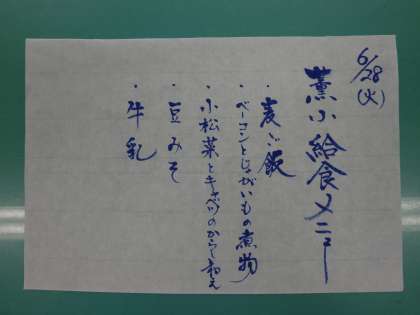 6/28(火)
薫小給食メニュー
・麦ご飯
・ベーコンとじゃがいもの煮物
・小松菜とキャベツのからし和え
・豆みそ
・牛乳